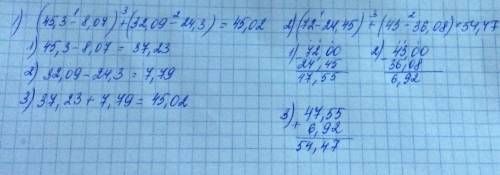 1) (45,3 - 8,07) + (32,09 - 24,3) = 45,02
1) 45,3 - 8,07 = 37,23
2) 32,09 - 24,3 = 7,79
3) 37,23 + 7,79 = 45,02
2) (72 - 24,45) + (43 - 36,08) = 54,47
1) 72,00
24,45
47,55
2) - 43,00
36,08
6,92
3) 47,55
+ 6,92
54,47